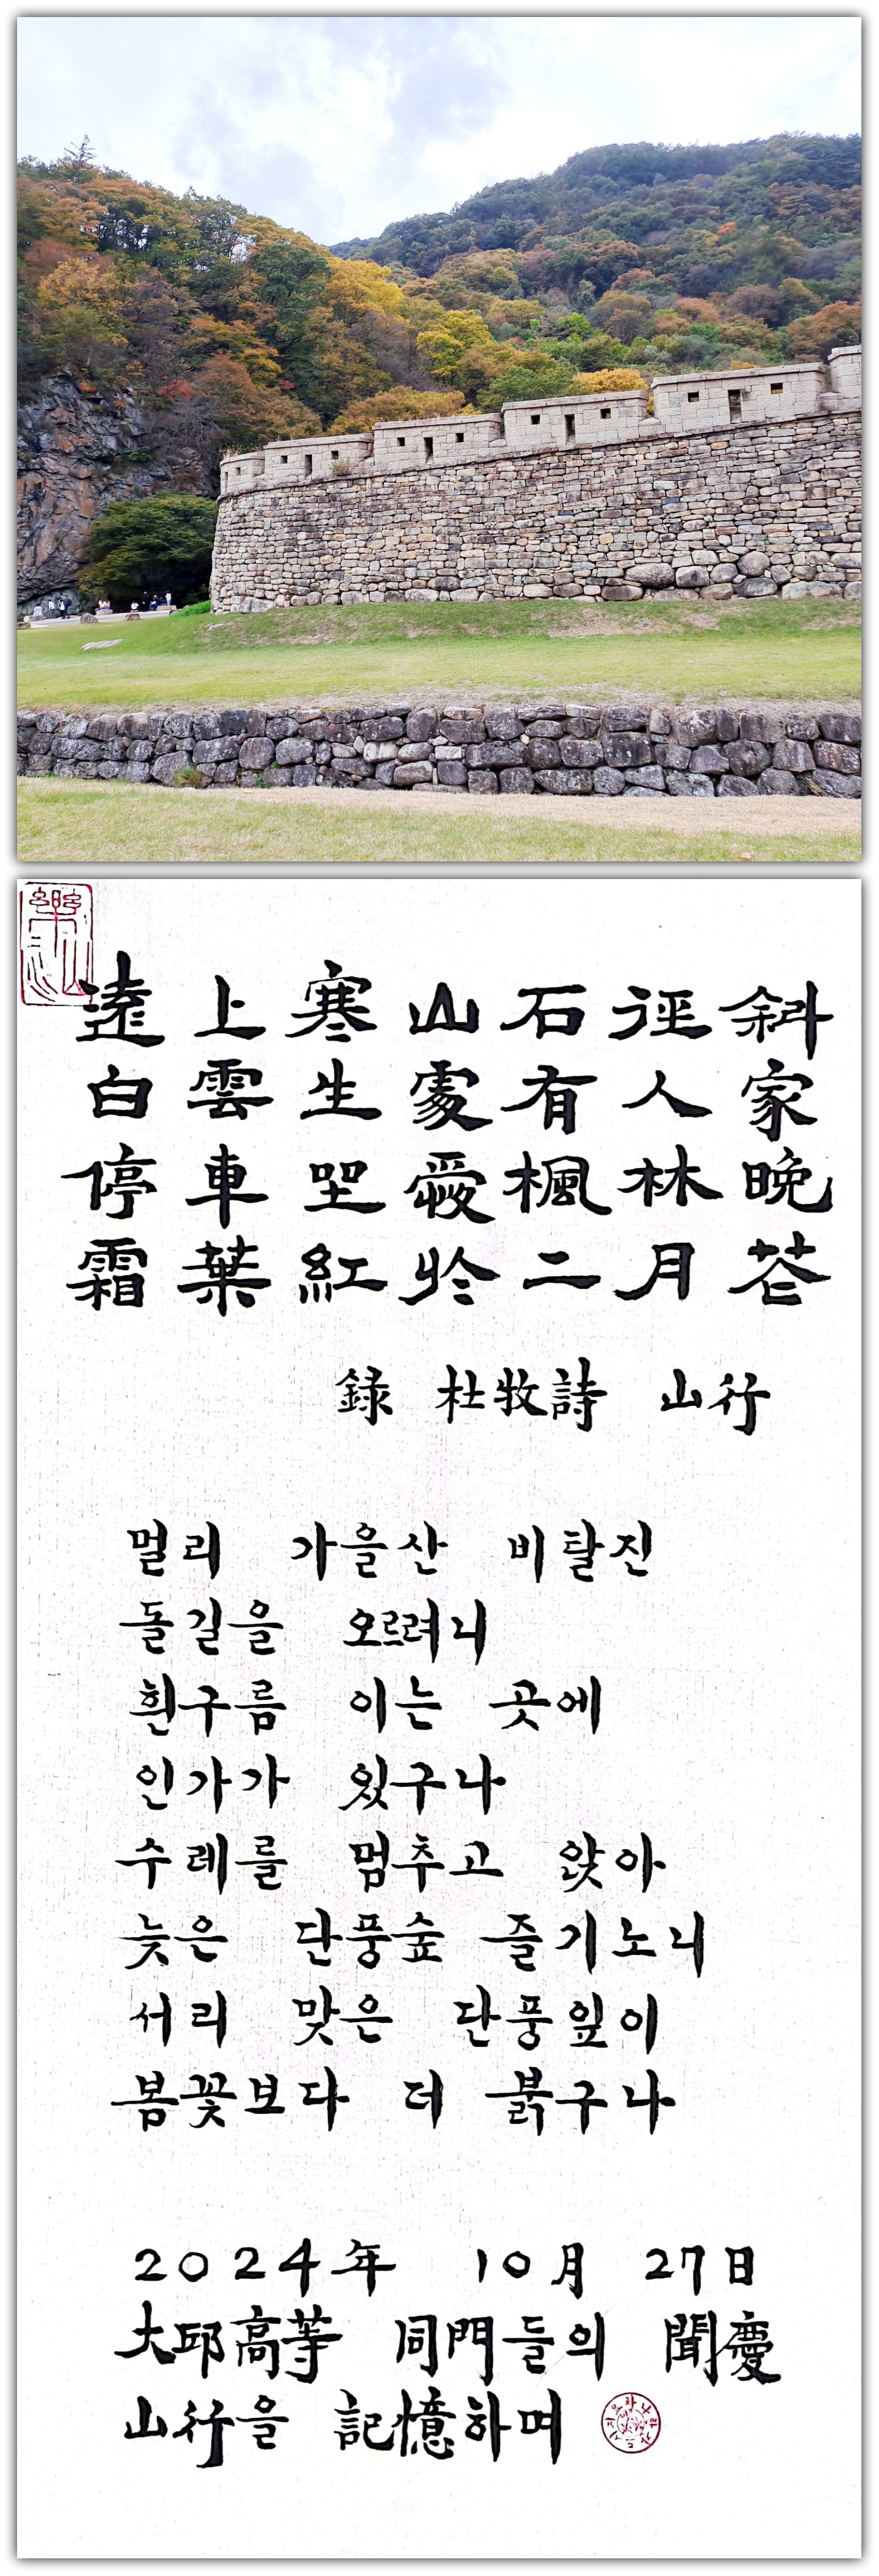 遠上寒山石徑斜
白雲生處有人家
停車坐愛楓林晚
霜葉紅於二月花
錄 杜牧詩 山行
멀리 가을산 비탈진
돌길을 오르려니
흰구름 이는 곳에
인가가 있구나
수레를 멈추고 앉아
늦은 단풍숲 즐기노니
서리 맞은 단풍잎이
봄꽃보다 더 붉구나
2024年 10月 27日
大邱高等 同門들의 聞慶
山行을 記憶하며